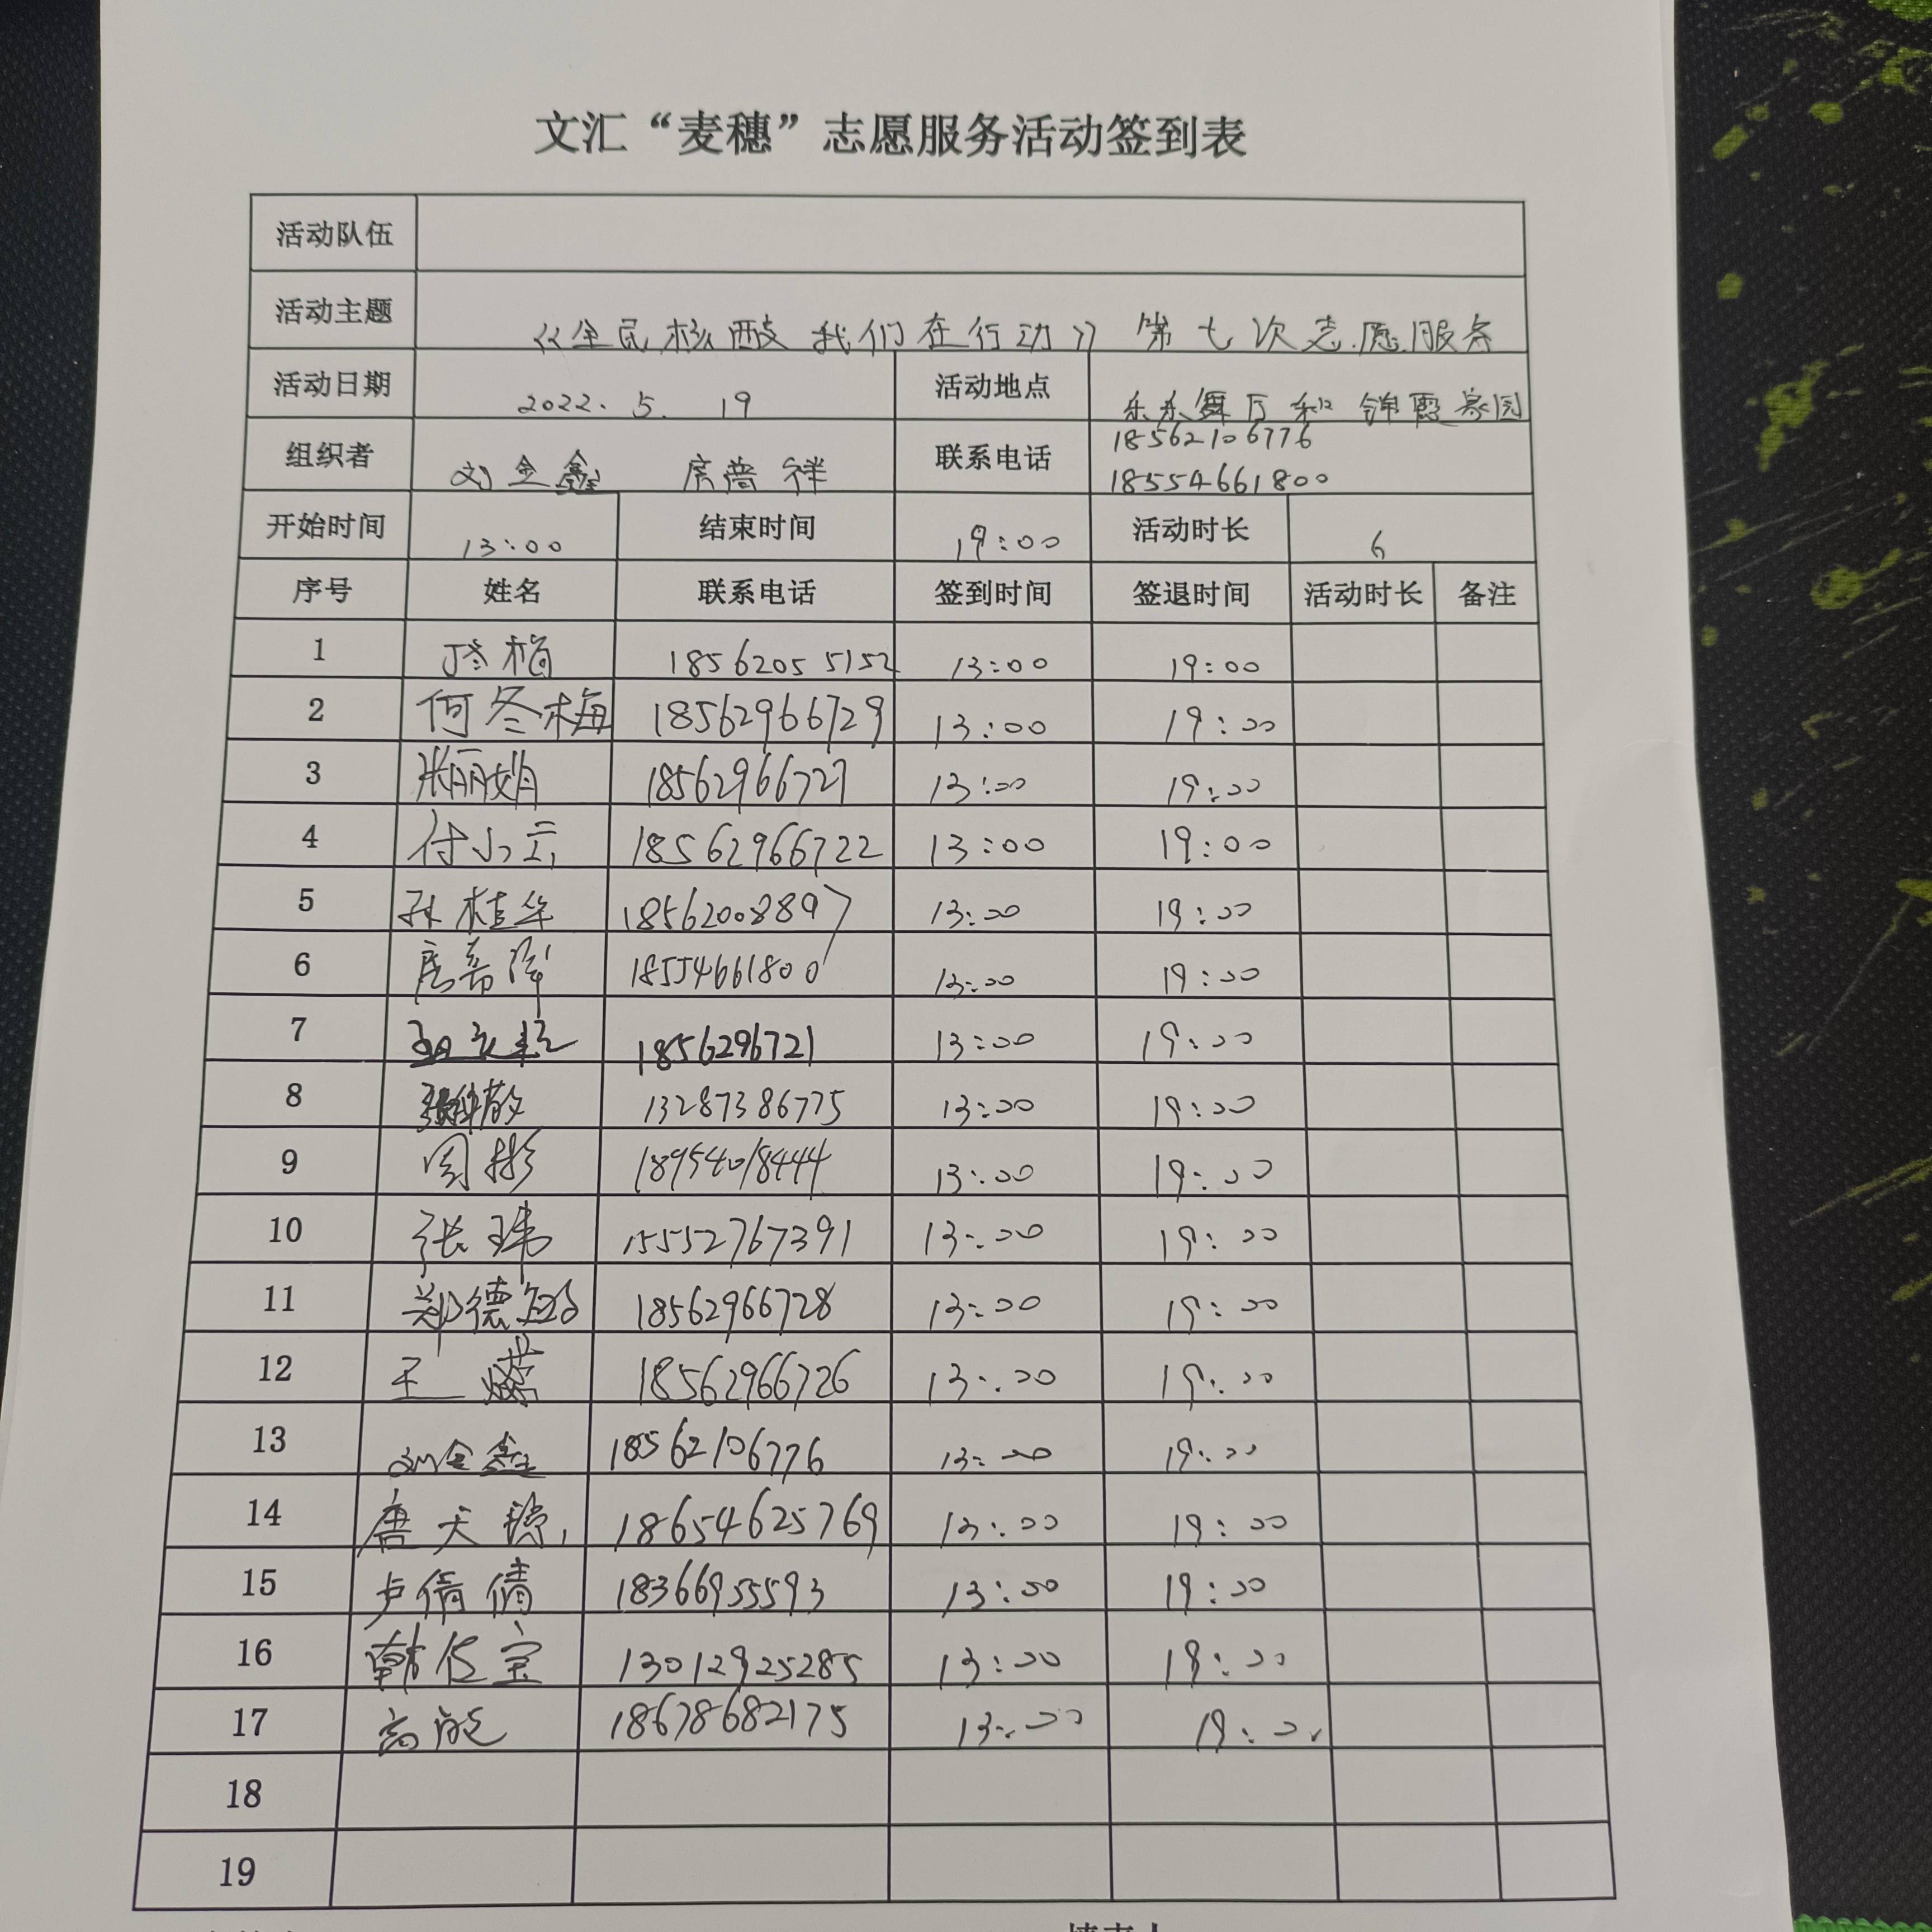 文汇“麦穗”志愿服务活动签到表
活动队伍
活动主题 《全民核酸 我们在行动》 第七次志愿服务
活动日期 2022. 5. 19 活动地点 东东舞厅和锦霞家园
组织者 刘金鑫 房普祥 联系电话 18562106776
18554661800
开始时间 13:00 结束时间 19:00 活动时长 6
序号 姓名 联系电话 签到时间 签退时间 活动时长 备注
1 18562055152 13:00 19:00
2 何冬梅 18562966729 13:00 19:00
3 张丽娟 18562966727 13:00 19:00
4 付小云 18562966722 13:00 19:00
5 孙桂华 18562008897 13:00 19:00
6 18554661800 13:00 19:00
7 1856296721 13:00 19:00
8 13287386775 13:00 19:00
9 周彬 18954018444 13:00 19:00
10 张玮 15552767391 13:00 19:00
11 郑德 18562966728 13:00 19:00
12 王 18562966726 13:00 19:00
13 刘金鑫 18562106776 13:00 19:00
14 唐天 18654625769 13:00 19:00
15 卢倩倩 18366955593 13:00 19:00
16 韩传宝 13012925285 13:00 19:00
17 高 18678682175 13:00 19:00
18
19